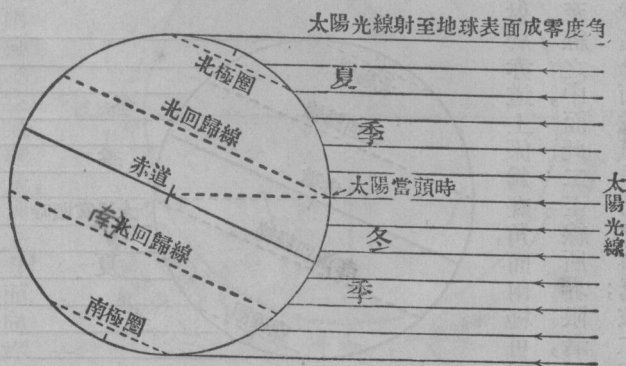 太陽光線射至地球表面成零度角
北極圈
夏季
北回歸線
赤道
太陽當頭時
太陽光線
南回歸線
冬季
南極圈